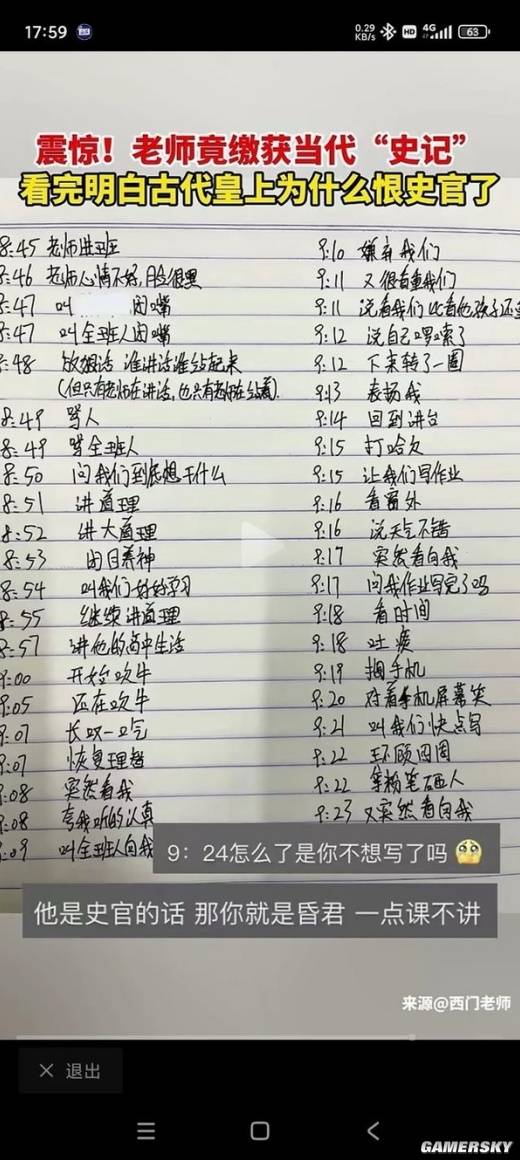 17:59
0.29 KB/s
HD
4G
63
震惊！老师竟缴获当代“史记”
看完明白古代皇上为什么恨史官了
8:45 老师进班
8:46 老师心情不好,脸很黑
8:47 叫 闭嘴
8:47 叫全班人闭嘴
8:48 放狠话 谁讲话谁站起来
(但只有老师在讲话,也只有老师在站着).
8:49 骂人
8:49 骂全班人
8:50 问我们到底想干什么
8:51 讲道理
8:52 讲大道理
8:53 闭目养神
8:54 叫我们好好学习
8:55 继续讲道理
8:57 讲他的高中生活
9:00 开始吹牛
9:05 还在吹牛
9:07 长叹一口气
9:07 恢复理智
9:08 突然看我
9:08 夸我听的认真
9:09 叫全班人向我
9:10 嫌弃我们
9:11 又很看重我们
9:11 说看我们比看他孩子还
9:12 说自己啰嗦了
9:12 下来转了一圈
9:13 表扬我
9:14 回到讲台
9:15 打哈欠
9:15 让我们写作业
9:16 看窗外
9:16 说天气不错
9:17 突然看向我
9:17 问我作业写完了吗
9:18 看时间
9:18 吐痰
9:19 掏手机
9:20 对着手机屏幕笑
9:21 叫我们快点写
9:22 环顾四周
9:22 拿粉笔砸人
9:23 又突然看向我
9：24怎么了是你不想写了吗 🥹
他是史官的话 那你就是昏君 一点课不讲
来源@西门老师
× 退出
GAMERSKY